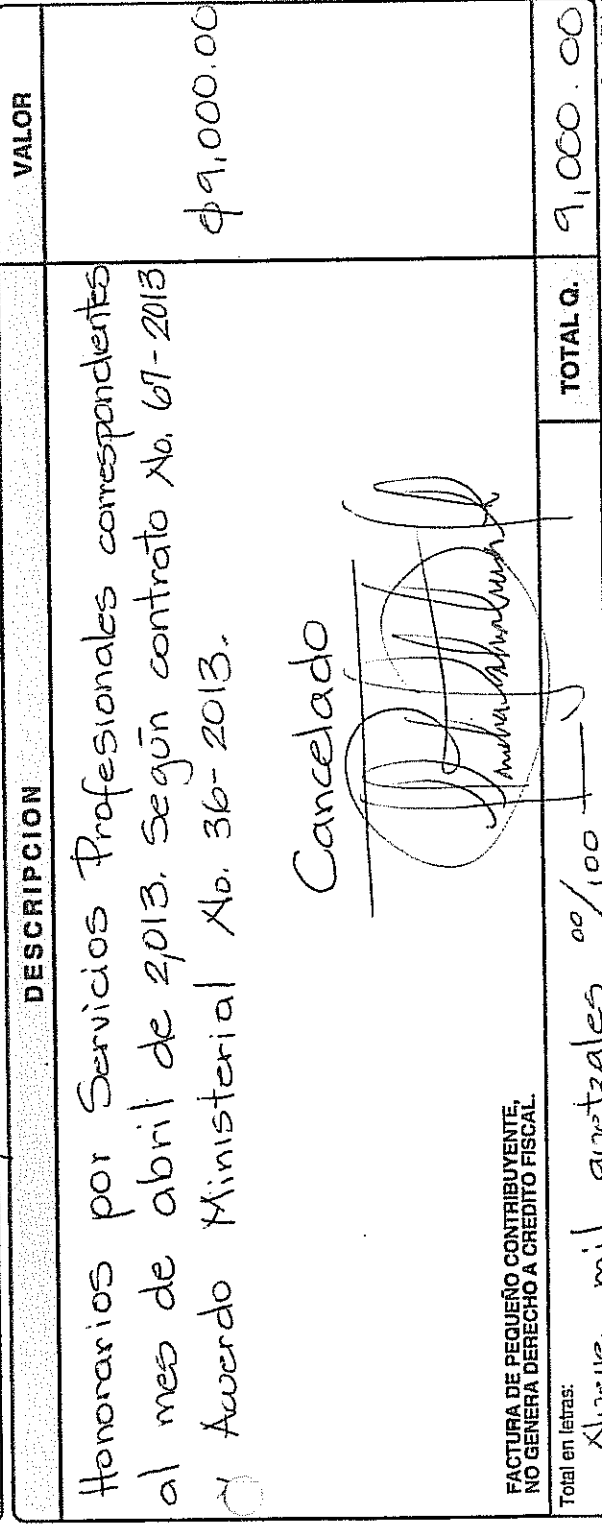 DESCRIPCION
VALOR
Honorarios por Servicios Profesionales correspondientes
al mes de abril de 2,013. Según contrato No. 67-2013
y Acuerdo Ministerial No. 36-2013.
Q9,000.00
Cancelado
FACTURA DE PEQUEÑO CONTRIBUYENTE,
NO GENERA DERECHO A CREDITO FISCAL.
Total en letras:
Nueve mil quetzales 00/100
TOTAL Q.
9,000.00